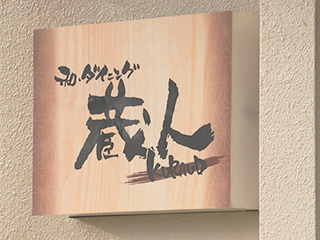 和・ダイニング
蔵人
KURAUD